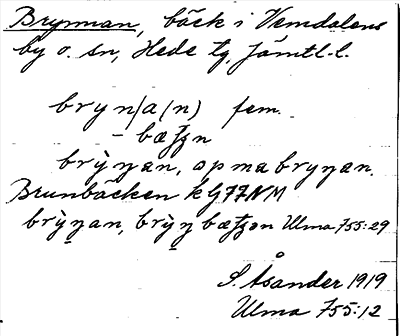 Brynnan, bäck i Vemdalens
by o. sn, Hede tg, Jämtl. l.
bryn/a(n) fem.
- bæʃʒn
brỳn̥an, opmabrynan.
Brunbäcken kG77NM
brỳn̥an, brỳn̥bæʃʒən Ulma 755:29
S. Åsander 1919
Ulma 755:12